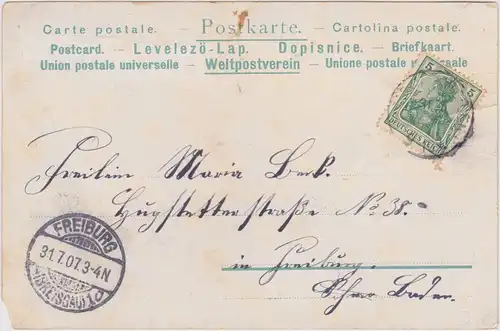 Carte postale. — Postkarte. — Cartolina postale.
Postcard. — Levelezö-Lap. Dopisnice. — Briefkaart.
Union postale universelle — Weltpostverein — Unione postale universale
5 5
DEUTSCHES REICH
Freilein Maria Beck.
Hugstetterstraße No 38.
in Freiburg.
Baden.
FREIBURG
31.7.07.3-4N
(BREISGAU) 1